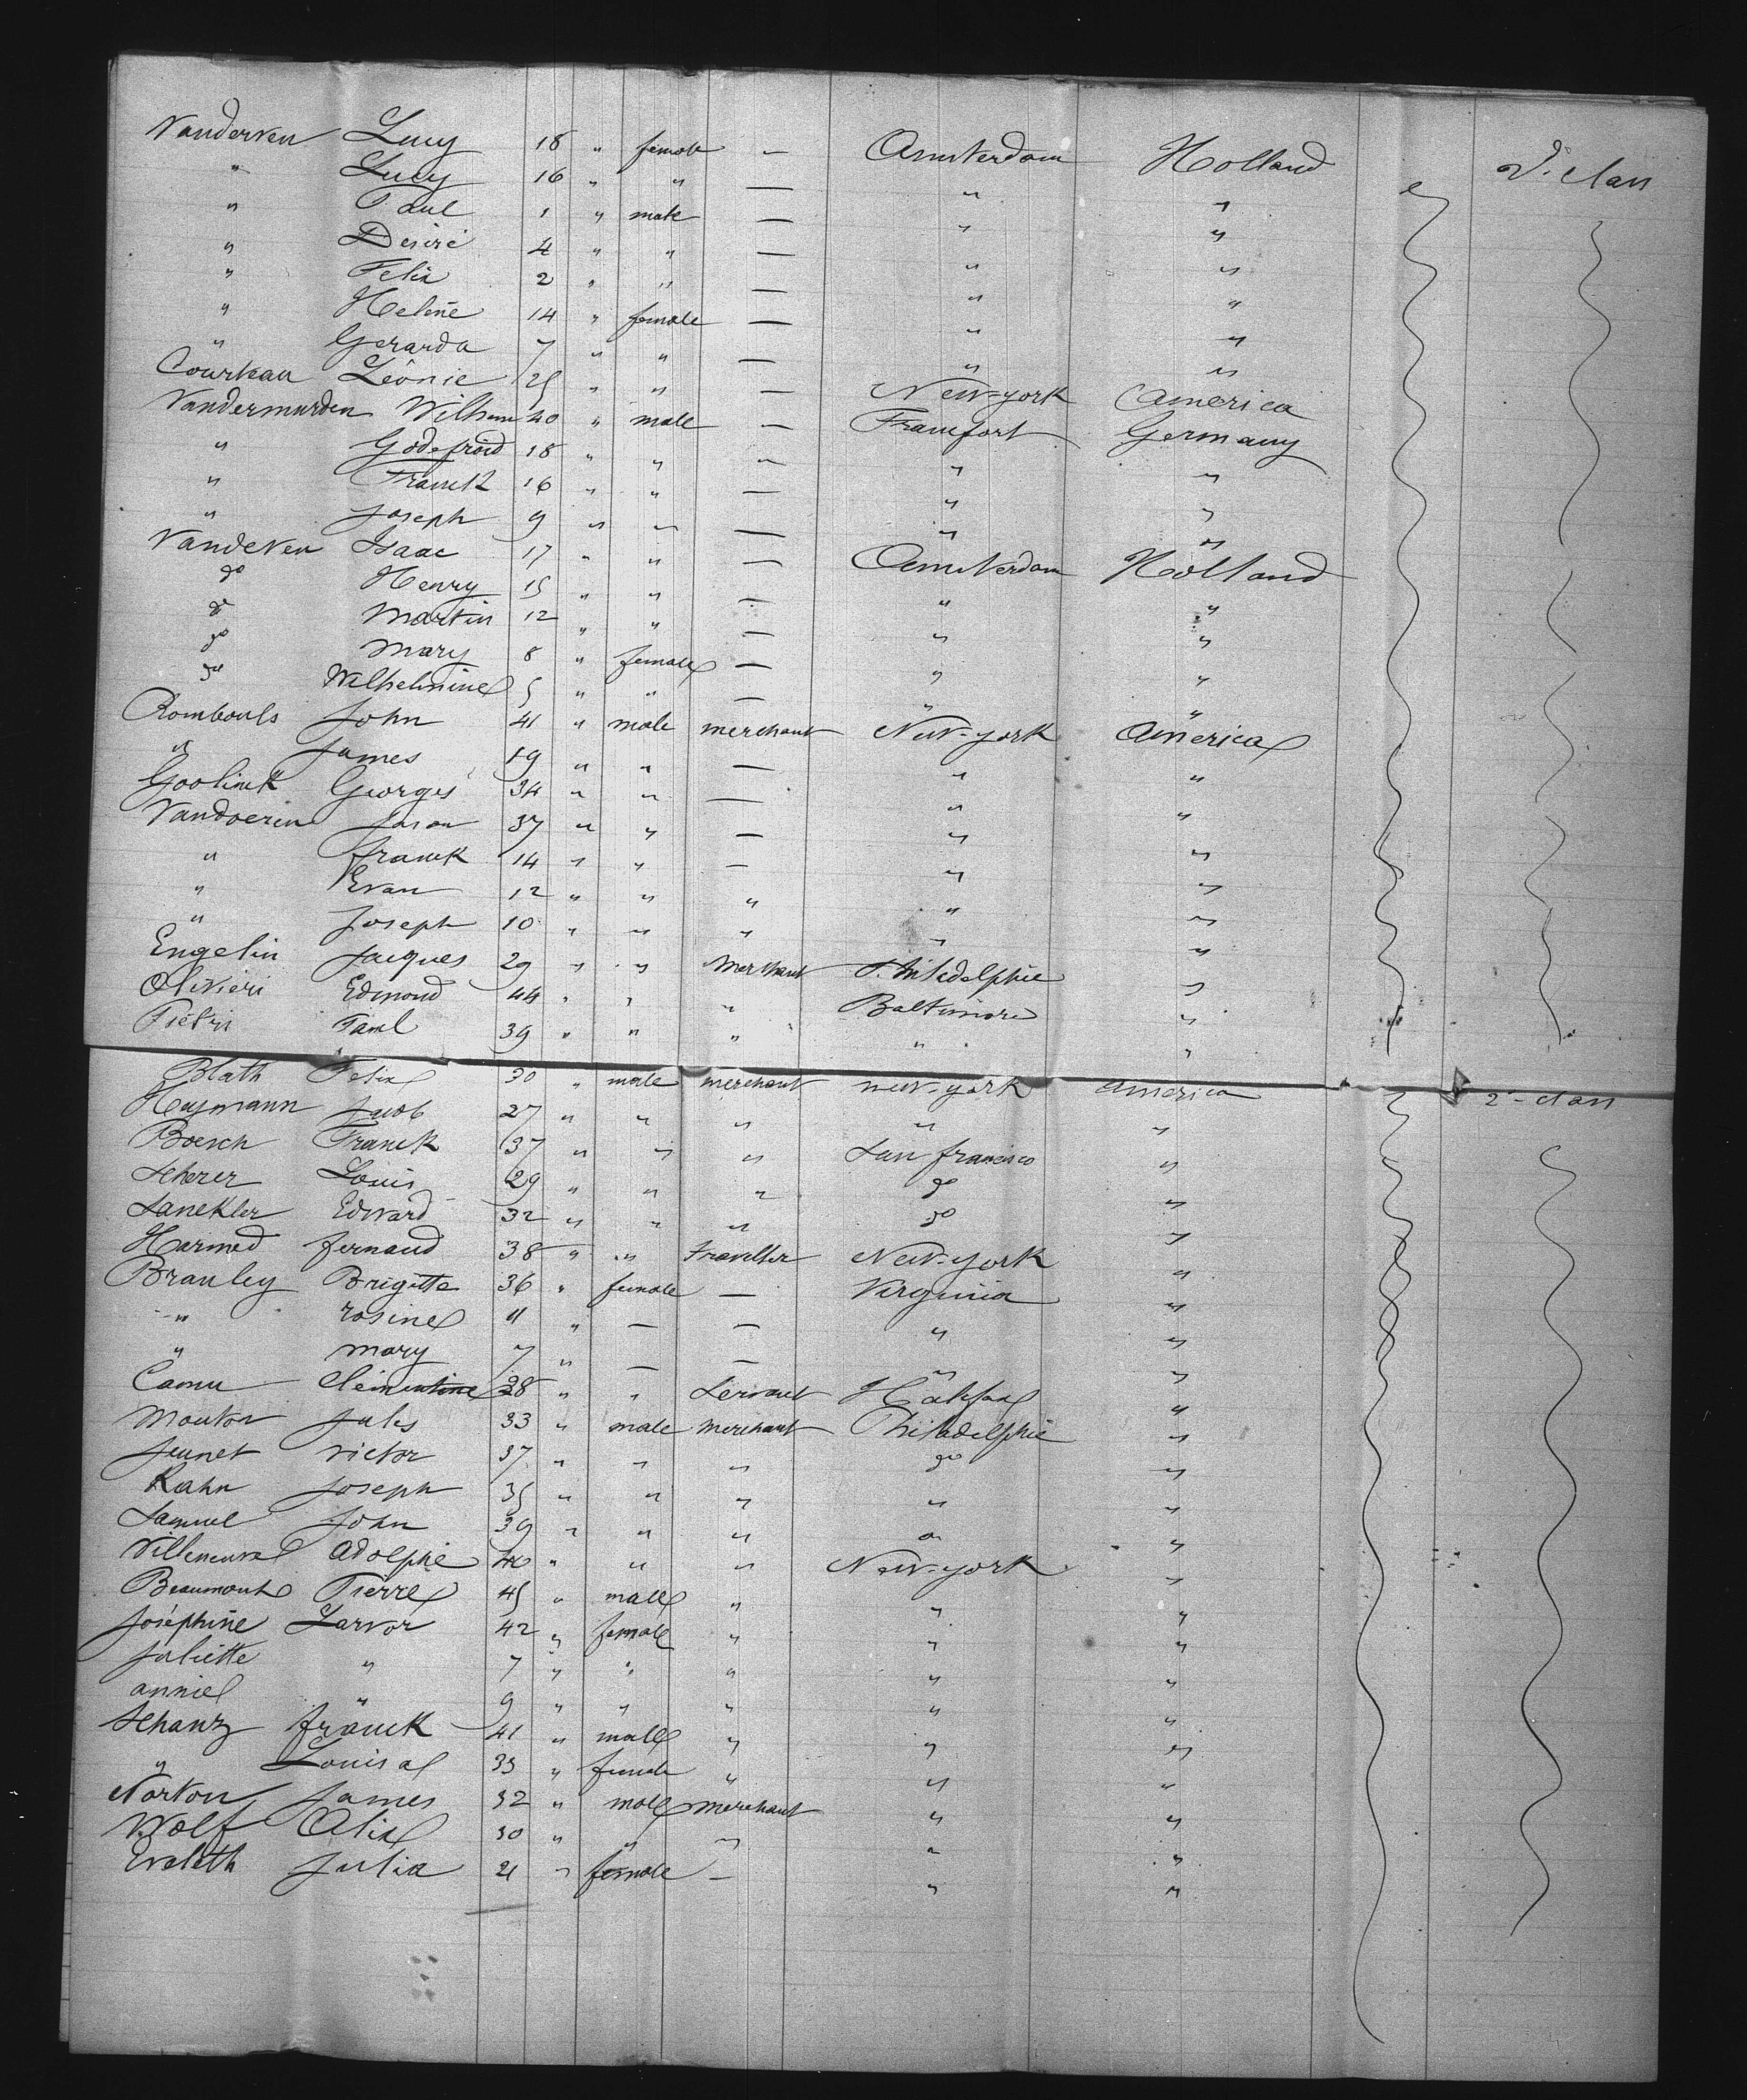 Vanderven Lucy 18 " female — Amsterdam Holland 2d. Class
" Lucy 16 " " — " "
" Paul 1 " male — " "
" Desiré 4 " " — " "
" Felix 2 " " — " "
" Helène 14 " female — " "
" Gerarda 7 " " — " "
Courteau Léonie 25 " " — New-york America
Vandermurden Wilhem 40 " male — Francfort Germany
" Godefroid 18 " " — " "
" Franck 16 " " — " "
" Joseph 9 " " — " "
Vandeven Isaac 17 " " — Amsterdam Holland
do Henry 15 " " — " "
do Martin 12 " " — " "
do Mary 8 " female — " "
do Wilhelmine 5 " " — " "
Rombouls John 41 " male merchant New-york America
" James 19 " " — " "
Goolinck Georges 34 " " — " "
Vandoeren Jason 37 " " — " "
" franck 14 " " — " "
" Evan 12 " " " " "
" Joseph 10 " " " " "
Engelin Jacques 29 " " Merchant Philadelphie "
Olivieri Edmond 44 " " " Baltimore "
Piétri Paul 39 " " " " "
Blath Felix 30 " male merchant new-york America 2d-class
Heymann Jacob 27 " " " " "
Boesch Franck 37 " " " San francisco "
Scherer Louis 29 " " " do "
Lanekler Edward 32 " " " do "
Harmed fernand 38 " " Traveller New-york "
Branley Brigitte 36 " female — Virginia "
" rosine 11 " — — " "
" mary 7 " — — " "
Camu Clémentine 28 " " Servant Halifax "
Mouton Jules 33 " male merchant Philadelphie "
Jeunet victor 37 " " " do "
Kahn Joseph 35 " " " " "
Samuel John 39 " " " " "
Villeneuve Adolphe 40 " " " New-york "
Beaumont Pierre 45 " male " " "
Joséphine Larvor 42 " female " " "
Juliette " 7 " " " " "
annie " 9 " " " " "
Schanz franck 41 " male " " "
" Louisa 35 " female " " "
Norton James 32 " male merchant " "
Wolf Alix 30 " " " " "
Eveleth Julia 21 " female — " "